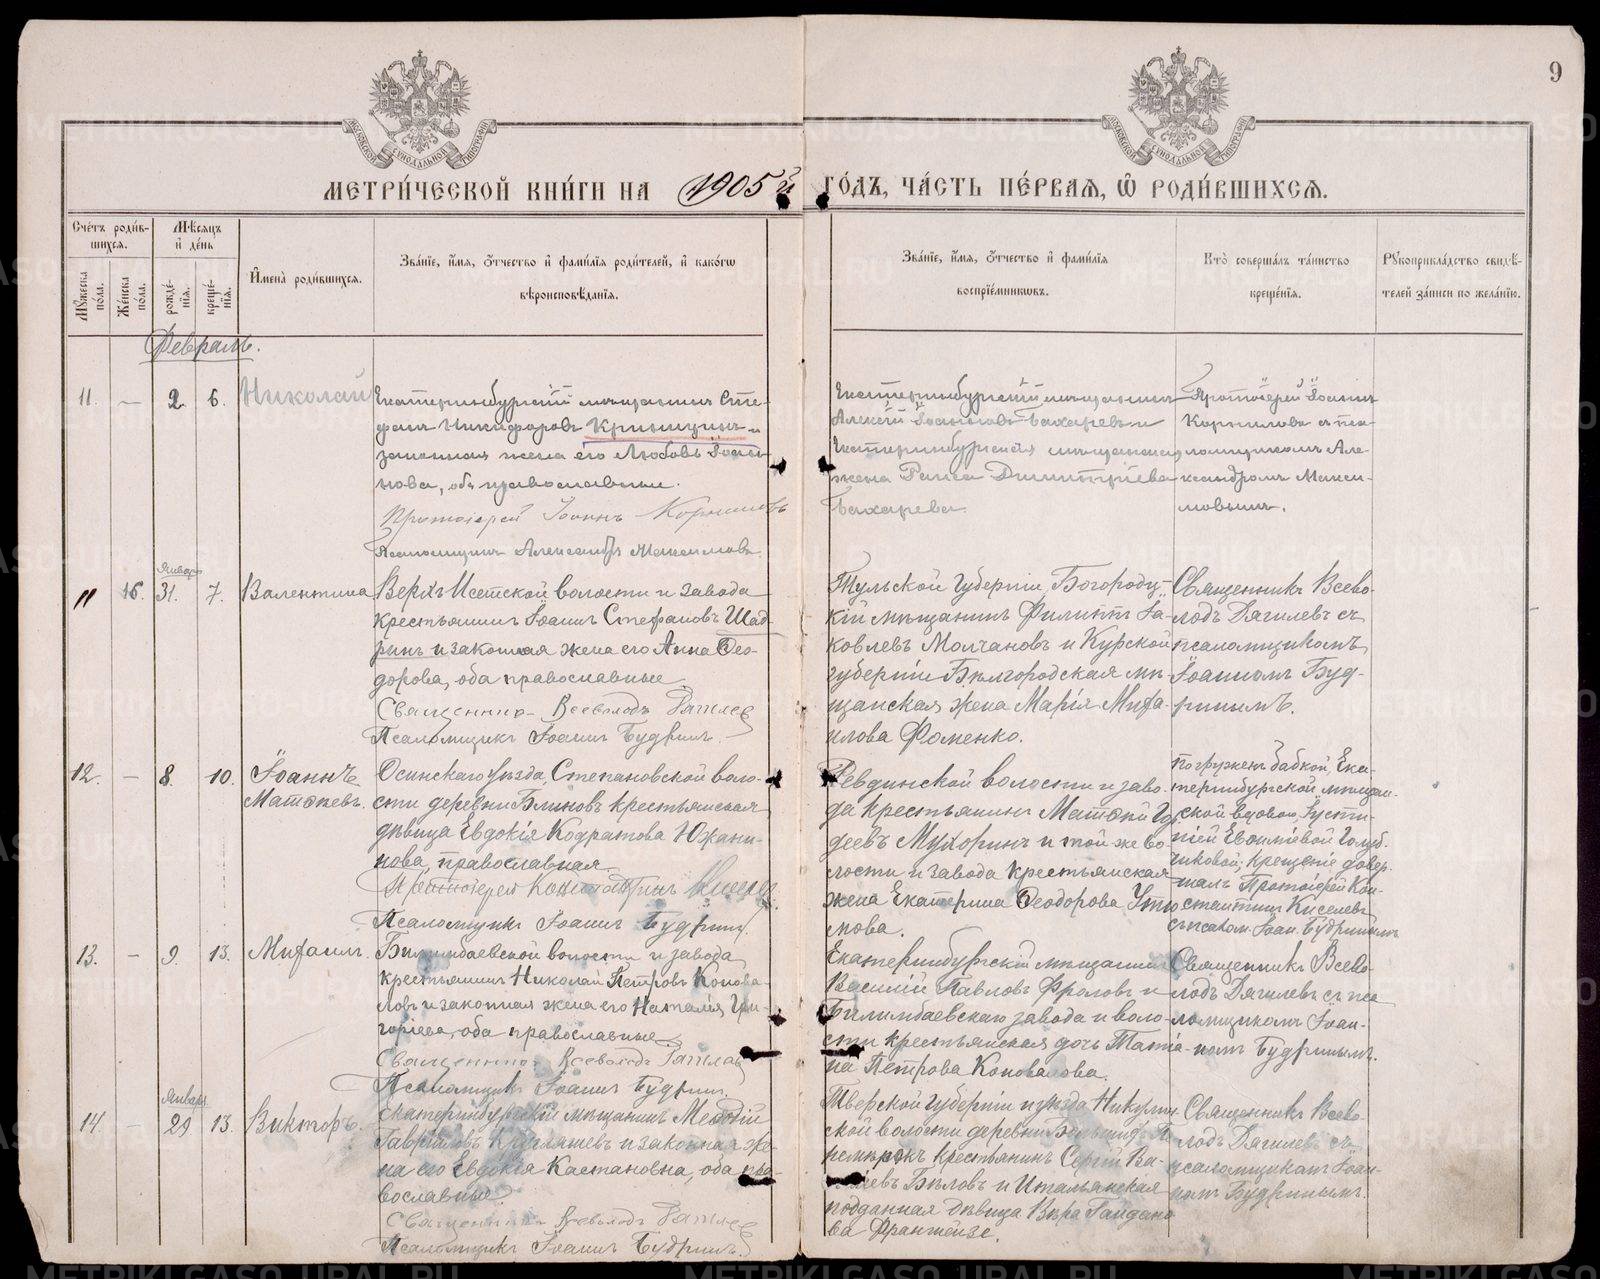 9
МОСКОВСКОЙ СѴНОДАЛЬНОЙ ТИПОГРАФІИ
МОСКОВСКОЙ СѴНОДАЛЬНОЙ ТИПОГРАФІИ
МЕТРИ́ЧЕСКОЙ КНИ́ГИ НА 1905й ГО́ДЪ, ЧА́СТЬ ПЕ́РВАѦ, Ѡ҆ РОДИ́ВШИХСѦ.
Сче́тъ роди́в-
шихсѧ.
Мꙋжеска по́ла.
Же́нска по́ла.
Мѣ́сѧцъ
и҆ де́нь
рожде́-нїѧ.
креще́-нїѧ.
И҆мена̀ роди́вшихсѧ.
Зва́нїе, и҆́мѧ, ѻ҆́тчество и҆ фами́лїѧ роди́телей, и҆ како́гѡ
вѣроисповѣ́данїѧ.
Зва́нїе, и҆́мѧ, ѻ҆́тчество и҆ фами́лїѧ
воспрїе́мникѡвъ.
Кто̀ соверша́лъ та́инство
креще́нїѧ.
Рꙋкоприкла́дство свидѣ́-
телей за́писи по жела́нїю.
Февраль.
11. — 2. 6. Николай
Екатеринбургскій мѣщанинъ Сте-
фанъ Никифоровъ Криницинъ и
законная жена его Любовь Іоан-
нова, оба православные.
Протоіерей Іоаннъ Корниловъ
Псаломщикъ Александръ Максимовъ.
Екатеринбургскій мѣщанинъ
Алексій Іоанновъ Бахаревъ и
Екатеринбургскія мѣщанина
жена Раиса Димитріева
Бахарева
Протоіерей Іоаннъ
Корниловъ съ пса-
ломщикомъ Але-
ксандромъ Макси-
мовымъ.
11 16. Января 31. 7. Валентина
Верхъ-Исетской волости и завода
крестьянинъ Іоаннъ Стефановъ Шад-
ринъ и законная жена его Анна Ѳео-
дорова, оба православные.
Священникъ Всеволодъ Дягилев
Псаломщикъ Іоаннъ Будринъ.
Тульской губерніи, Богородц-
кій мѣщанинъ Филиппъ Іа-
ковлевъ Молчановъ и Курской
губерніи Бѣлгородская мѣ-
щанская жена Марія Миха-
илова Фоменко.
Священникъ Всево-
лодъ Дягилевъ съ
псаломщикомъ
Іоанномъ Буд-
ринымъ.
12. — 8. 10. Іоаннъ
Матѳіевъ.
Осинскаго уѣзда, Степановской воло-
сти деревни Блиновъ крестьянская
дѣвица Евдокія Кодратова Южани-
нова, православная
Протоіерей Константинъ Киселевъ
Псаломщикъ Іоаннъ Будринъ.
Ревдинской волости и заво-
да крестьянинъ Матѳій
деевъ Мухоринъ и той же во-
лости и завода крестьянская
жена Екатерина Ѳеодорова Утю-
мова.
Погруженъ бабкой, Ека-
теринбургской мѣщан-
ской вдовою, Іусти-
ніей Евѳиміевой Голуб-
чиковой; крещеніе довер-
шалъ Протоіерей Кон-
стантинъ Киселевъ
съ псалом. Іоан. Будринымъ
13. — 9. 13. Михаилъ.
Билимбаевской волости и завода
крестьянинъ Николай Петровъ Конова-
ловъ и законная жена его Наталія Гри-
горіева, оба православные
Священникъ Всеволодъ Дягилев
Псаломщикъ Іоаннъ Будринъ.
Екатеринбургскій мѣщанинъ
Василій Павловъ Фроловъ и
Билимбаевскаго завода и воло-
сти крестьянская дочь Татіа-
на Петрова Коновалова.
Священникъ Всево-
лодъ Дягилевъ съ пса-
ломщикомъ Іоан-
номъ Будринымъ.
14. — Января 29 13. Викторъ.
Екатеринбургскій мѣщанинъ Меѳодій
Гавриловъ Кругляшевъ и законная же-
на его Евдокія Кастановна, оба пра-
вославные
Священникъ Всеволодъ Дягилев
Псаломщикъ Іоаннъ Будринъ.
Тверской губерніи и уѣзда Никулин-
ской волости деревни
крестьянинъ Сергій Ва-
сильевъ Бѣловъ и Итальянская
подданная дѣвица Вѣра Гайдано-
ва Франтези.
Священникъ Всево-
лодъ Дягилевъ съ
псаломщикомъ Іоан-
номъ Будринымъ.
METRIKI.GASO-URAL.RU